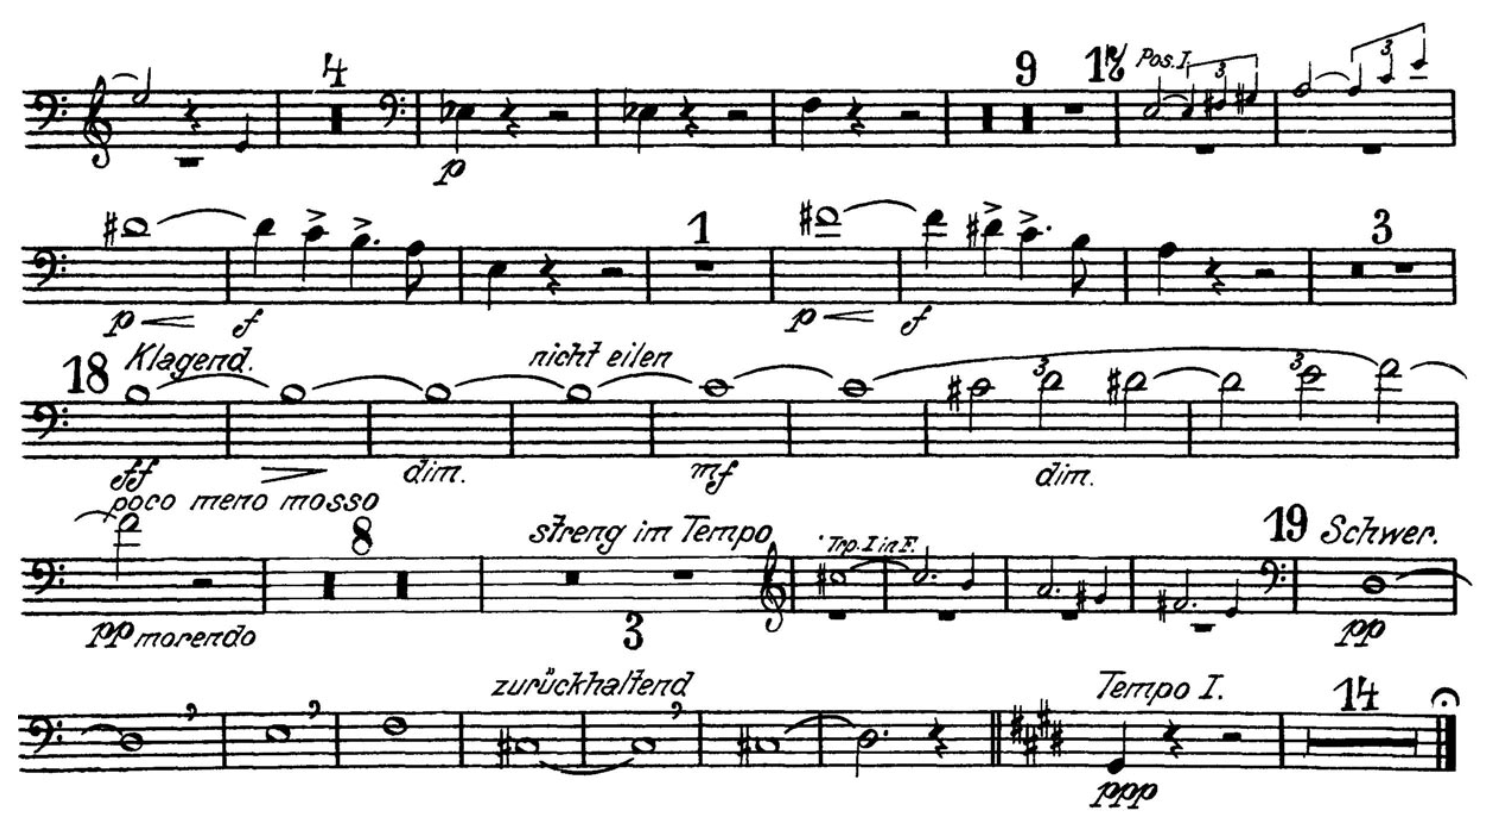 4 9 17 Pos. I. 3 3
p
1 3
p f p f
18 Klagend. nicht eilen 3 3
ff dim. mf dim.
poco meno mosso
8 streng im Tempo Trp. I in F. 19 Schwer.
pp morendo 3 pp
zurückhaltend Tempo I. 14
ppp